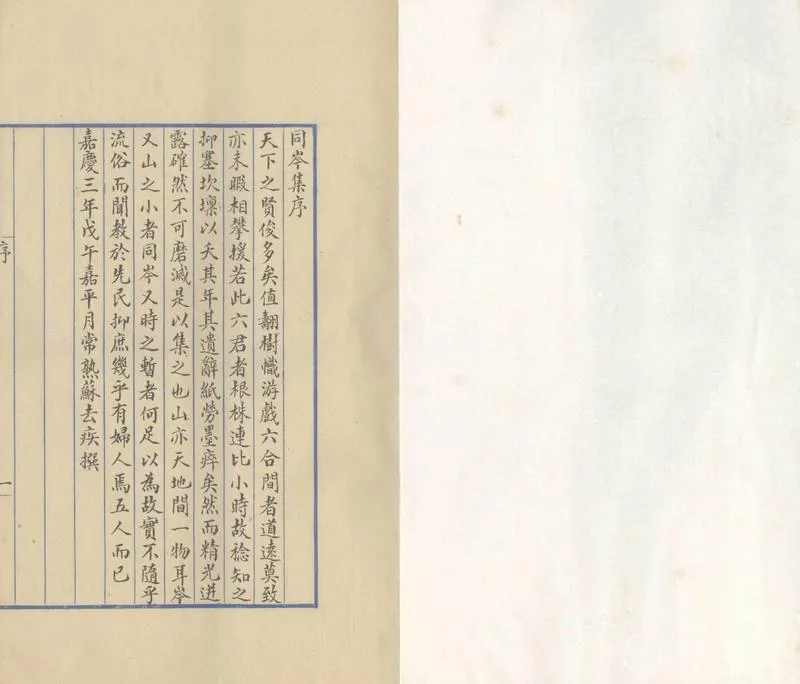 同岑集序
天下之賢俊多矣值翿樹幟游戲六合間者道遠莫致
亦未暇相攀援若此六君者根株連比小時故稔知之
抑塞坎壈以夭其年其遺辭紙勞墨瘁矣然而精光迸
露確然不可磨滅是以集之也山亦天地間一物耳岑
又山之小者同岑又時之暫者何足以為故實不隨乎
流俗而聞教於先民抑庶幾乎有婦人焉五人而已
嘉慶三年戊午嘉平月常熟蘇去疾撰
序
一